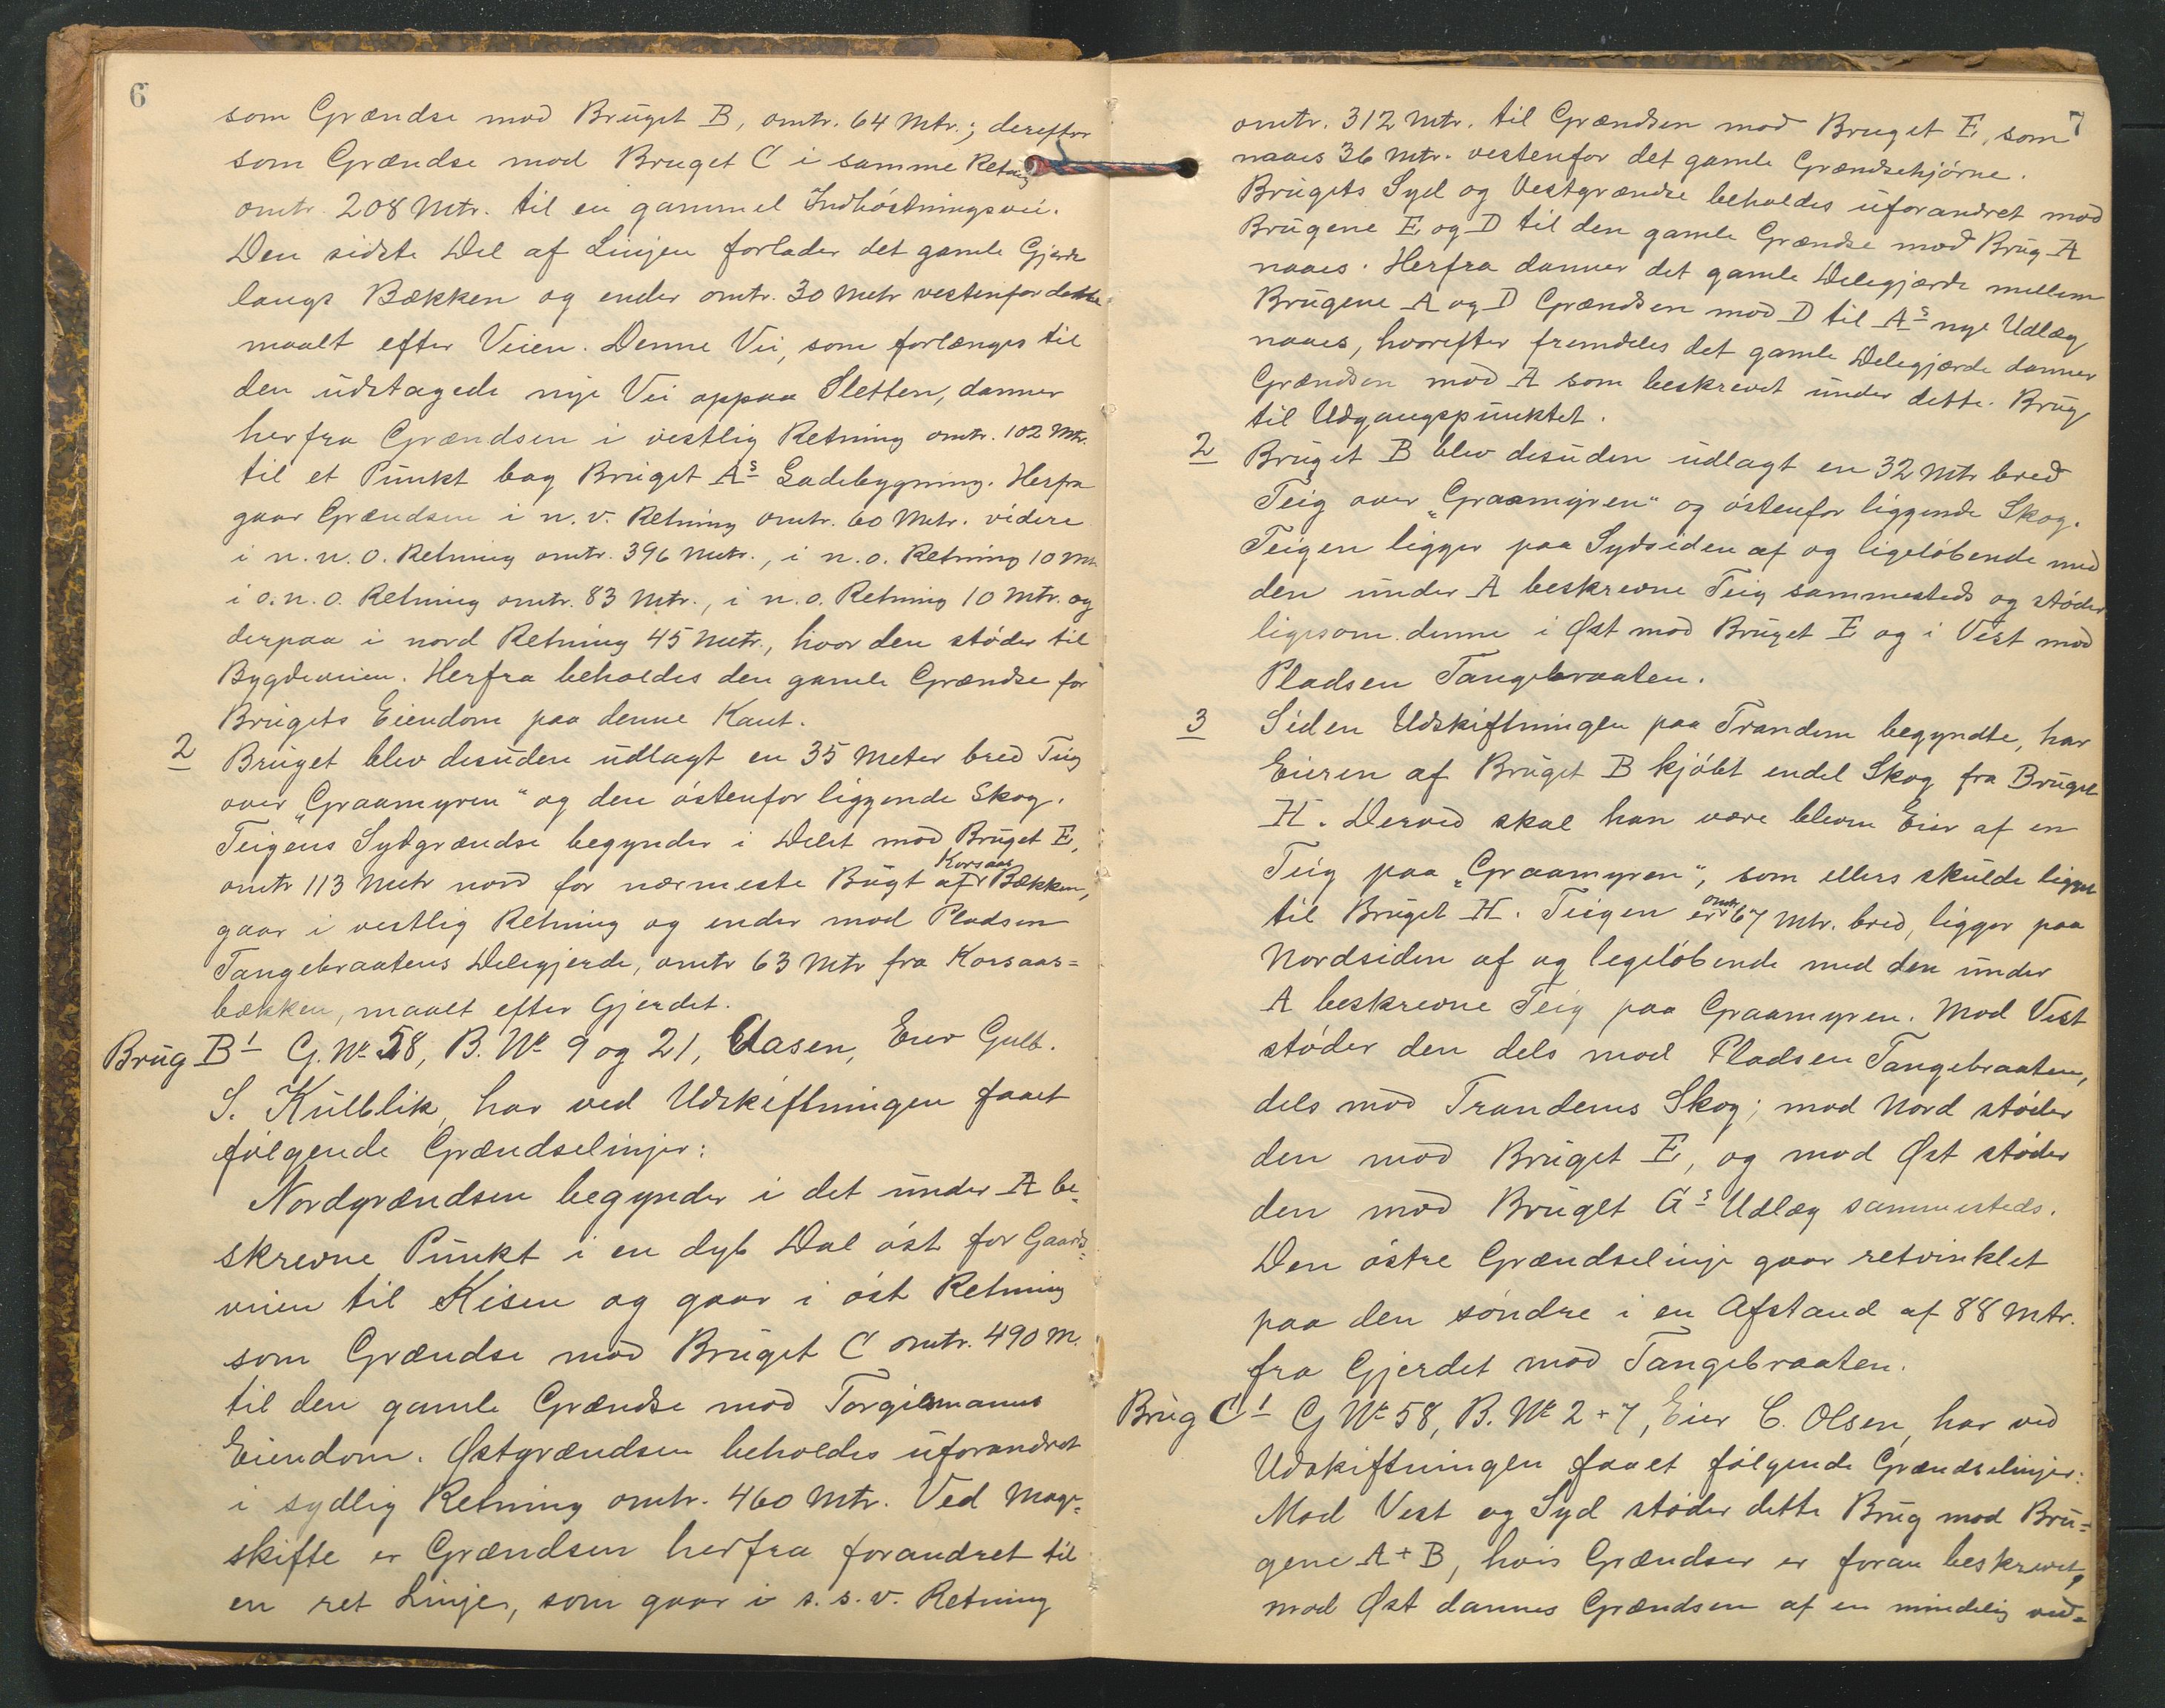 6
som Grændse mod Bruget B, omtr. 64 Mtr.; derefter
som Grændse mod Bruget C i samme Retning
omtr. 208 Mtr. til en gammel Indhøstningsvei.
Den sidste Del af Linjen forlader det gamle Gjerde
langs Bækken og ender omtr. 30 Metr vestenfor dette
maalt efter Veien. Denne Vei, som forlænges til
den udstagede nye Vei oppaa Sletten, danner
herfra Grændsen i vestlig Retning omtr. 102 Mtr.
til et Punkt bag Bruget As Ladebygning. Herfra
gaar Grændsen i n.v. Retning omtr. 60 Metr. videre
i n.n.o. Retning omtr. 396 Metr., i n.o. Retning 10 Mtr
i o.n.o. Retning omtr. 83 Mtr., i n.o. Retning 10 Mtr. og
derpaa i nord Retning 45 Metr., hvor den støder til
Bygdeveien. Herfra beholdes den gamle Grændse for
Brugets Eiendom paa denne Kant.
2 Bruget blev desuden udlagt en 35 Meter bred Teig
over „Graamyren“ og den østenfor liggende Skog.
Teigens Sydgrændse begynder i Delet mod Bruget E,
omtr 113 Metr nord for nærmeste Bugt af Korsaas Bækken,
gaar i vestlig Retning og ender mod Pladsen
Tangebraatens Delegjerde, omtr 63 Mtr fra Korsaas=
bækken, maalt efter Gjerdet.
Brug B 1 G. No 58, B. No 9 og 21, Aasen, Eier Gulb.
S. Kulblik, har ved Udskiftningen faaet
følgende Grændselinjer:
Nordgrændsen begynder i det under A be-
skrevne Punkt i en dyb Dal øst for Gaards=
veien til Kisen og gaar i øst Retning
som Grændse mod Bruget C omtr. 490 M.
til den gamle Grændse mod Torgismanns
Eiendom. Østgrændsen beholdes uforandret
i sydlig Retning omtr. 460 Mtr. Ved Mage-
skifte er Grændsen herfra forandret til
en ret Linje, som gaar i s.s.v. Retning
7
omtr. 312 Mtr. til Grændsen mod Bruget E, som
naaes 36 Mtr. vestenfor det gamle Grændsehjørne.
Brugets Syd og Vestgrændse beholdes uforandret mod
Brugene E og D til den gamle Grændse mod Brug A
naaes. Herfra danner det gamle Delegjærde mellem
Brugene A og D Grændsen mod D til As nye Udlæg
naaes, hvorefter fremdeles det gamle Delegjærde danner
Grændsen mod A som beskrevet under dette Brug
til Udgangspunktet.
2 Bruget B blev desuden udlagt en 32 Mtr bred
Teig over „Graamyren“ og østenfor liggende Skog.
Teigen ligger paa Sydsiden af og ligeløbende med
den under A beskrevne Teig sammesteds og støder
ligesom denne i Øst mod Bruget E og i Vest mod
Pladsen Tangebraaten.
3 Siden Udskiftningen paa Trandem begyndte, har
Eieren af Bruget B kjøbt endel Skog fra Bruget
H. Derved skal han være bleven Eier af en
Teig paa „Graamyren“, som ellers skulde ligget
til Bruget H. Teigen er omtr. 67 Mtr. bred, ligger paa
Nordsiden af og legeløbende med den under
A beskrevne Teig paa Graamyren. Mod Vest
støder den dels mod Pladsen Tangebraaten,
dels mod Trandems Skog; mod Nord støder
den mod Bruget E, og mod Øst støder
den mod Bruget Gs Udlæg sammesteds.
Den østre Grændselinje gaar retvinklet
paa den søndre i en Afstand af 88 Mtr.
fra Gjerdet mod Tangebraaten.
Brug C 1 G No 58, B. No 2 + 7, Eier C. Olsen, har ved
Udskiftningen faaet følgende Grændselinjer:
Mod Vest og Syd støder dette Brug mod Bru=
gene A + B, hvis Grændser er foran beskrevet,
mod Øst dannes Grændsen af en mindelig ved=